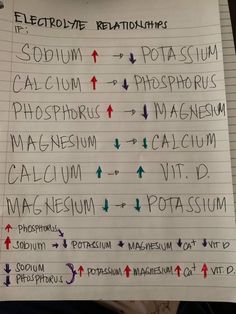 ELECTROLYTE RELATIONSHIPS
IF:
SODIUM ↑ → ↓ POTASSIUM
CALCIUM ↑ → ↓ PHOSPHORUS
PHOSPHORUS ↑ → ↓ MAGNESIUM
MAGNESIUM ↓ → ↓ CALCIUM
CALCIUM ↑ → ↑ VIT. D.
MAGNESIUM ↓ → ↓ POTASSIUM
↑ PHOSPHORUS
↑ SODIUM → ↓ POTASSIUM ↓ MAGNESIUM ↓ Ca⁺ ↓ VIT D
↓ SODIUM
↓ PHOSPHORUS ↑ POTASSIUM ↑ MAGNESIUM ↑ Ca⁺ ↑ VIT D.